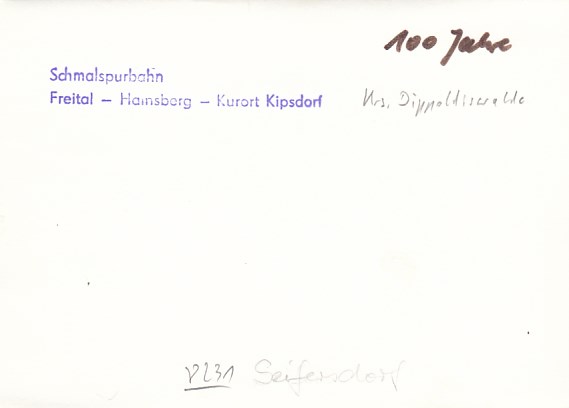 100 Jahre
Schmalspurbahn
Freital – Hainsberg – Kurort Kipsdorf
Krs. Dippoldiswalde
Seifersdorf